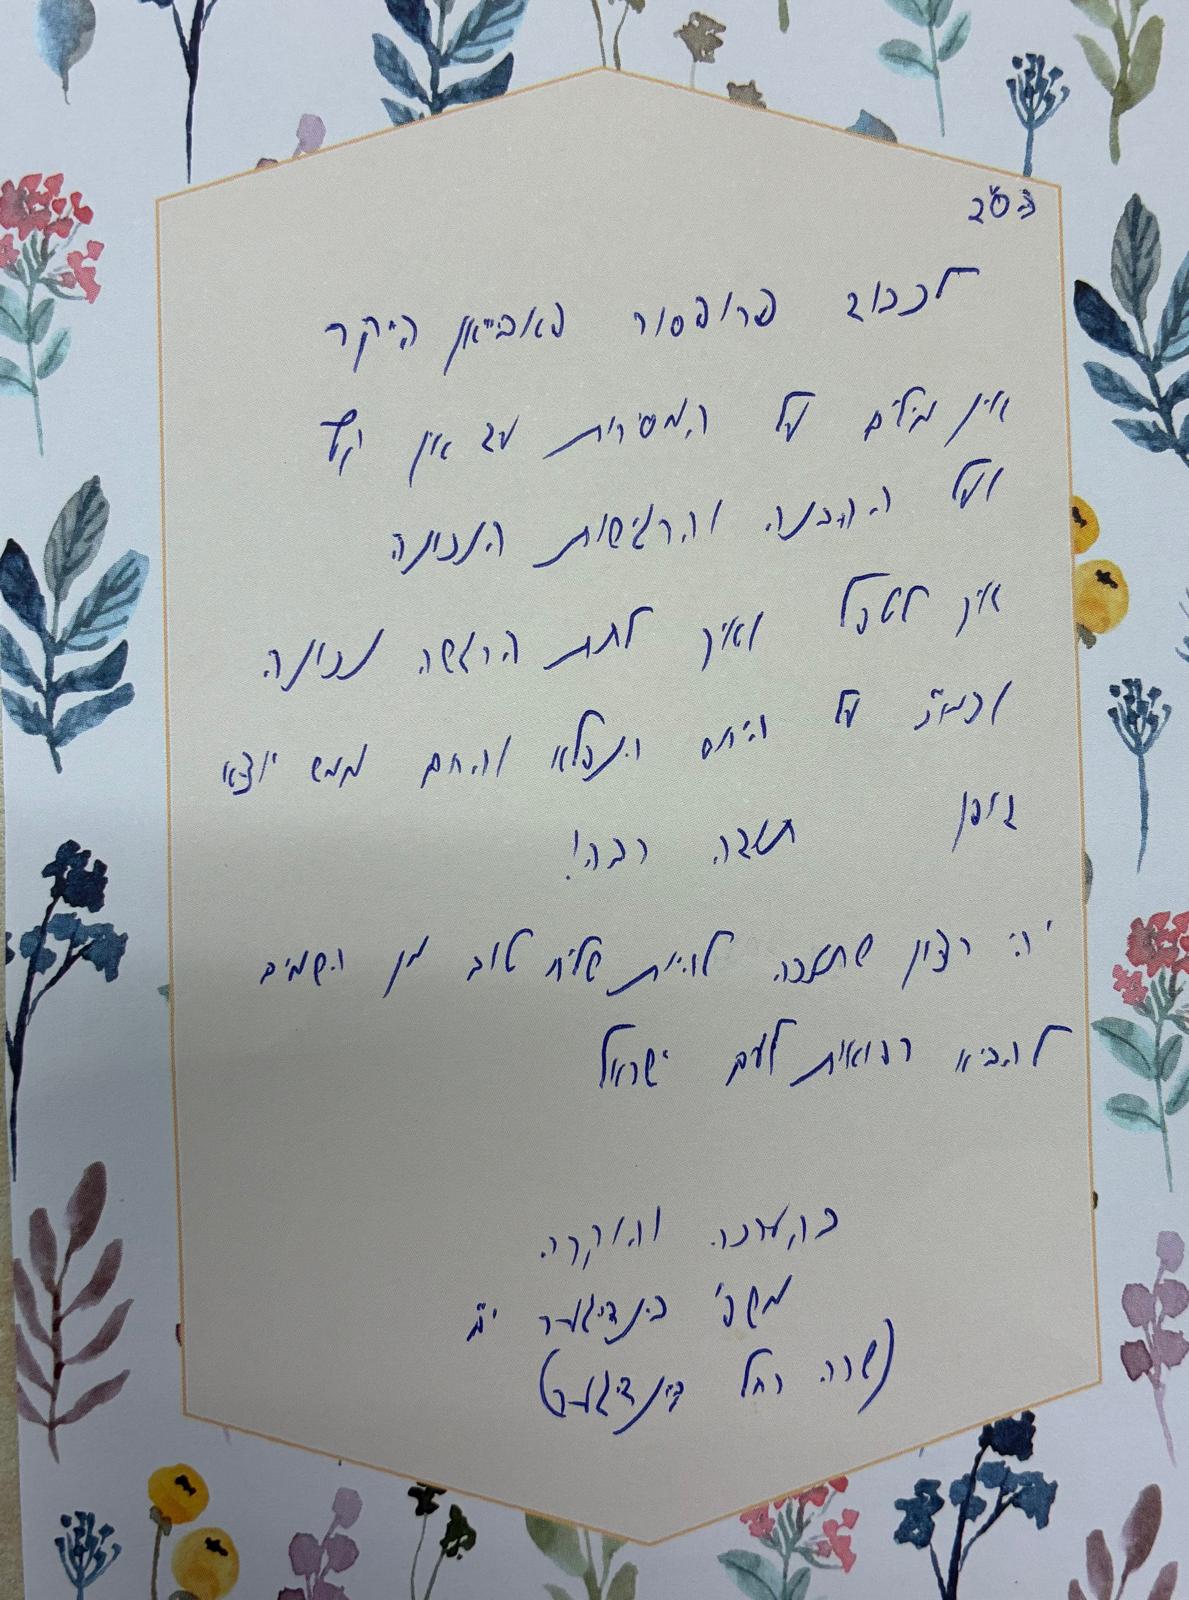 בס"ד
לכבוד פרופסור פאביאן היקר
אין מילים על המסירות עד אין קץ
ועל ההבנה והרגישות הנכונה
איך לטפל ואיך לתת הרגשה נכונה
וכמו"כ על היחס הנפלא והחם ממש יוצא
דופן תודה רבה!
יהי רצון שתזכה להיות שליח טוב מן השמים
להביא רפואות לעם ישראל
בהערכה והוקרה
משפ' בינדיגער
(שרה רחל בינדיגער)